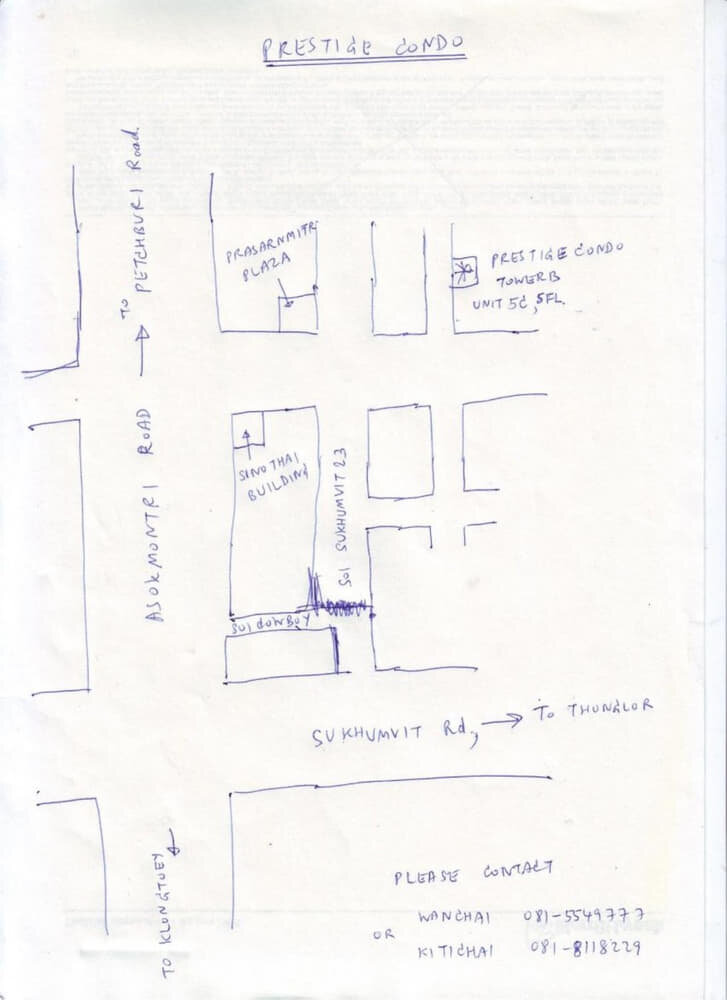 PRESTIGE CONDO
TO PETCHBURI Road.
PRASARNMITR
PLAZA
PRESTIGE CONDO
TOWER B
UNIT 5C, 5FL.
ASOKMONTRI ROAD
SINO THAI
BUILDING
Soi SUKHUMVIT 23
SOI COWBOY
SUKHUMVIT Rd,
TO THUNGLOR
TO KLONGTOEY
PLEASE CONTACT
WANCHAI 081-5549777
OR
KITICHAI 081-8118229